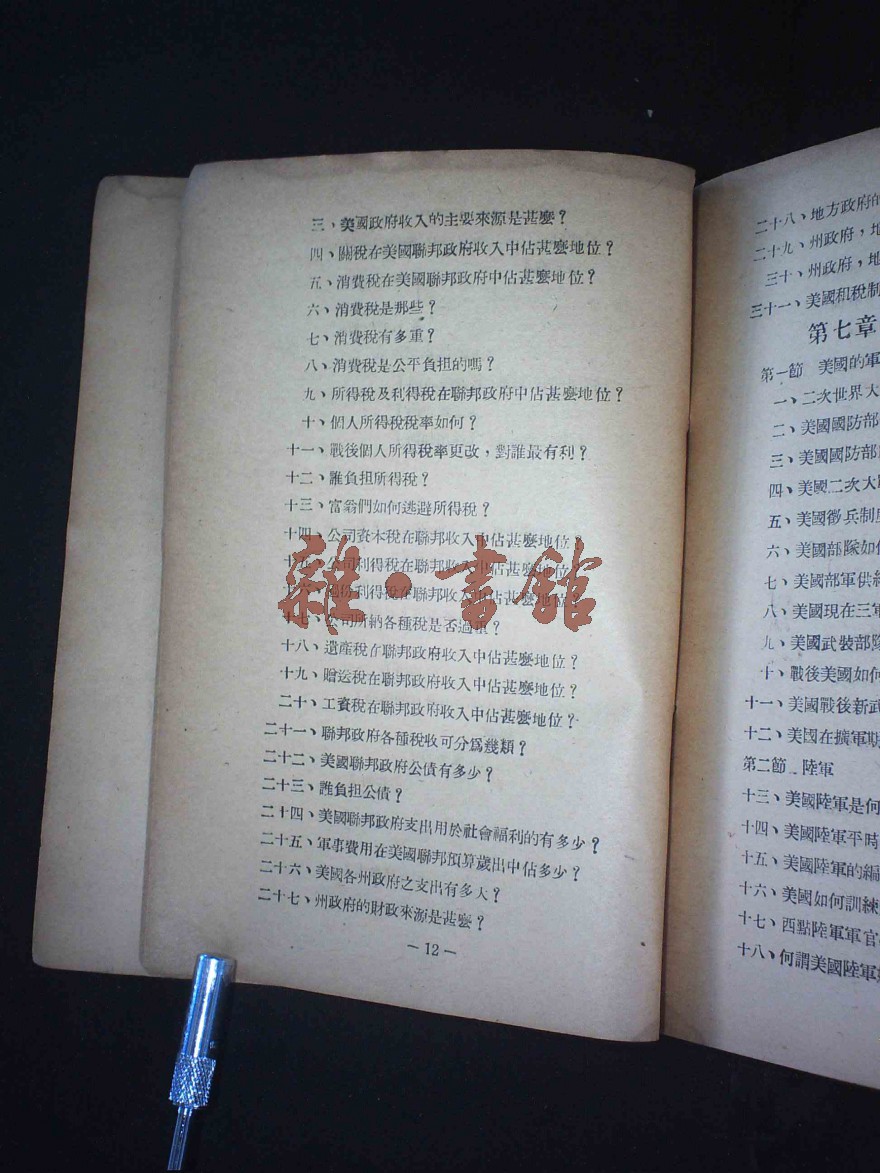 三、美國政府收入的主要來源是甚麼？
四、關稅在美國聯邦政府收入中佔甚麼地位？
五、消費稅在美國聯邦政府中佔甚麼地位？
六、消費稅是那些？
七、消費稅有多重？
八、消費稅是公平負担的嗎？
九、所得稅及利得稅在聯邦政府中佔甚麼地位？
十、個人所得稅稅率如何？
十一、戰後個人所得稅率更改，對誰最有利？
十二、誰負担所得稅？
十三、富翁們如何逃避所得稅？
十四、公司資本稅在聯邦收入中佔甚麼地位？
十五、公司利得稅在聯邦政府收入中佔甚麼地位？
十六、過份利得稅在聯邦收入中佔甚麼地位？
十七、公司所納各種稅是否過重？
十八、遺產稅在聯邦政府收入中佔甚麼地位？
十九、贈送稅在聯邦政府收入中佔甚麼地位？
二十、工資稅在聯邦政府收入中佔甚麼地位？
二十一、聯邦政府各種稅收可分爲幾類？
二十二、美國聯邦政府公債有多少？
二十三、誰負担公債？
二十四、美國聯邦政府支出用於社會福利的有多少？
二十五、軍事費用在美國聯邦預算歲出中佔多少？
二十六、美國各州政府之支出有多大？
二十七、州政府的財政來源是甚麼？
— 12 —
雜·書館
二十八、地方政府的
二十九、州政府，地
三十、州政府，地
三十一、美國租稅制
第七章
第一節 美國的軍
一、二次世界大
二、美國國防部
三、美國國防部
四、美國二次大
五、美國徵兵制
六、美國部隊如
七、美國部軍供
八、美國現在三軍
九、美國武裝部隊
十、戰後美國如何
十一、美國戰後新武
十二、美國在擴軍期
第二節 陸軍
十三、美國陸軍是何
十四、美國陸軍平時
十五、美國陸軍的編
十六、美國如何訓練
十七、西點陸軍軍官
十八、何謂美國陸軍